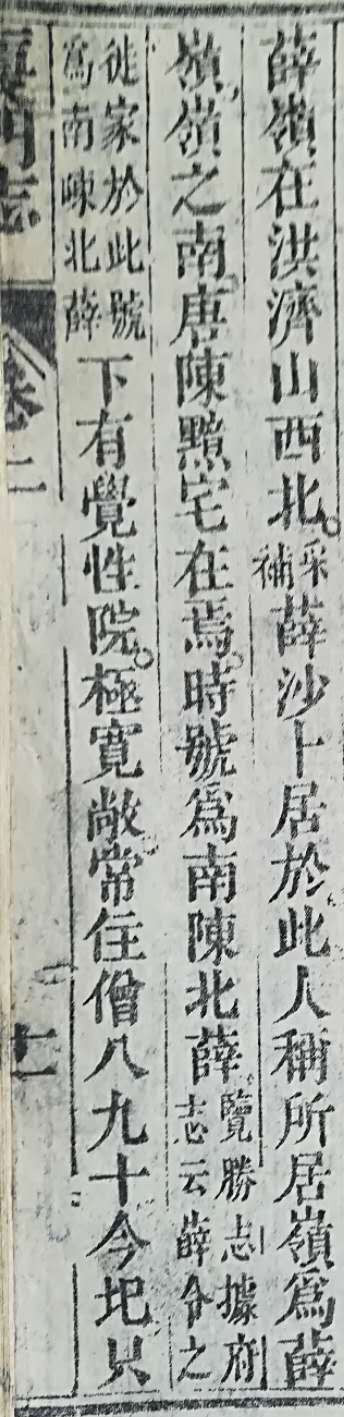 薛嶺在洪濟山西北。采補薛沙卜居於此人稱所居嶺爲薛
嶺，嶺之南。唐陳黯宅在焉。時號爲南陳北薛。覽勝志據府志云薛令之
徙家於此號爲南陳北薛下有覺性院。極寬敞。常住僧八九十今圯只
廈門志 卷二 十一